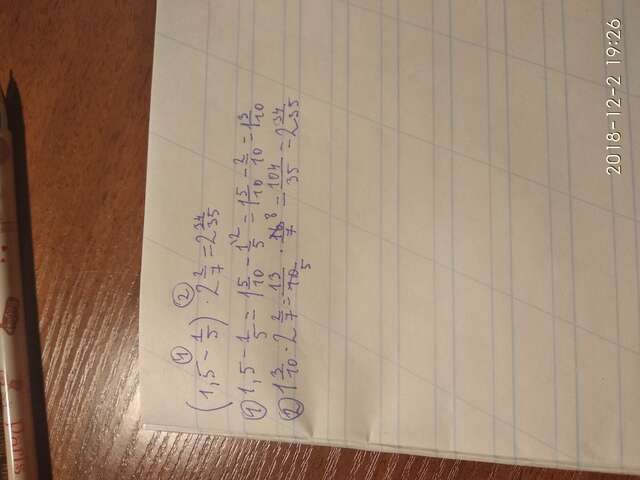 Paris
① ②
(1,5 - 1/5) · 2 2/7 = 2 34/35
① 1,5 - 1/5 = 1 5/10 - 1/5 \2 = 1 5/10 - 2/10 = 1 3/10
② 1 3/10 · 2 2/7 = 13/10 5 · 16/7 8 = 104/35 = 2 34/35
2018-12-2 19:26